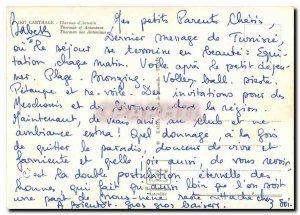 CARTHAGE - Thermes d'Antonin
Thermae of Antoninus
Thermen des Antoninus
Mes petits Parents Chéris,
Dernier message de Tunisie,
où le séjour se termine en Beauté: Equi
tation chaque matin. Voile après le petit déjeu
ner. Plage. Bronzing. Volley ball. sieste.
Pétanque et re-voile. Des invitations pour des
Mechouis et de dans la région.
Maintenant, de vrais amis au club et une
ambiance extra! Quel dommage à la fois
de quitter le paradis, douceur de vivre et
farniente et quelle joie aussi, de vous revoir
est la double postulation éternelle des
hommes, qui fait qu'aussi loin que l'on soit
une part de nous-même reste attachée chez soi.
A bientôt. Gros gros baisers.